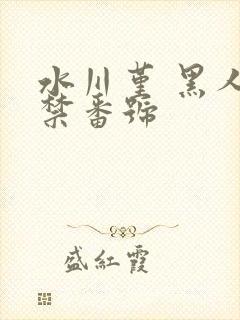 水川堇 黑人
禁番號
盛紅霞